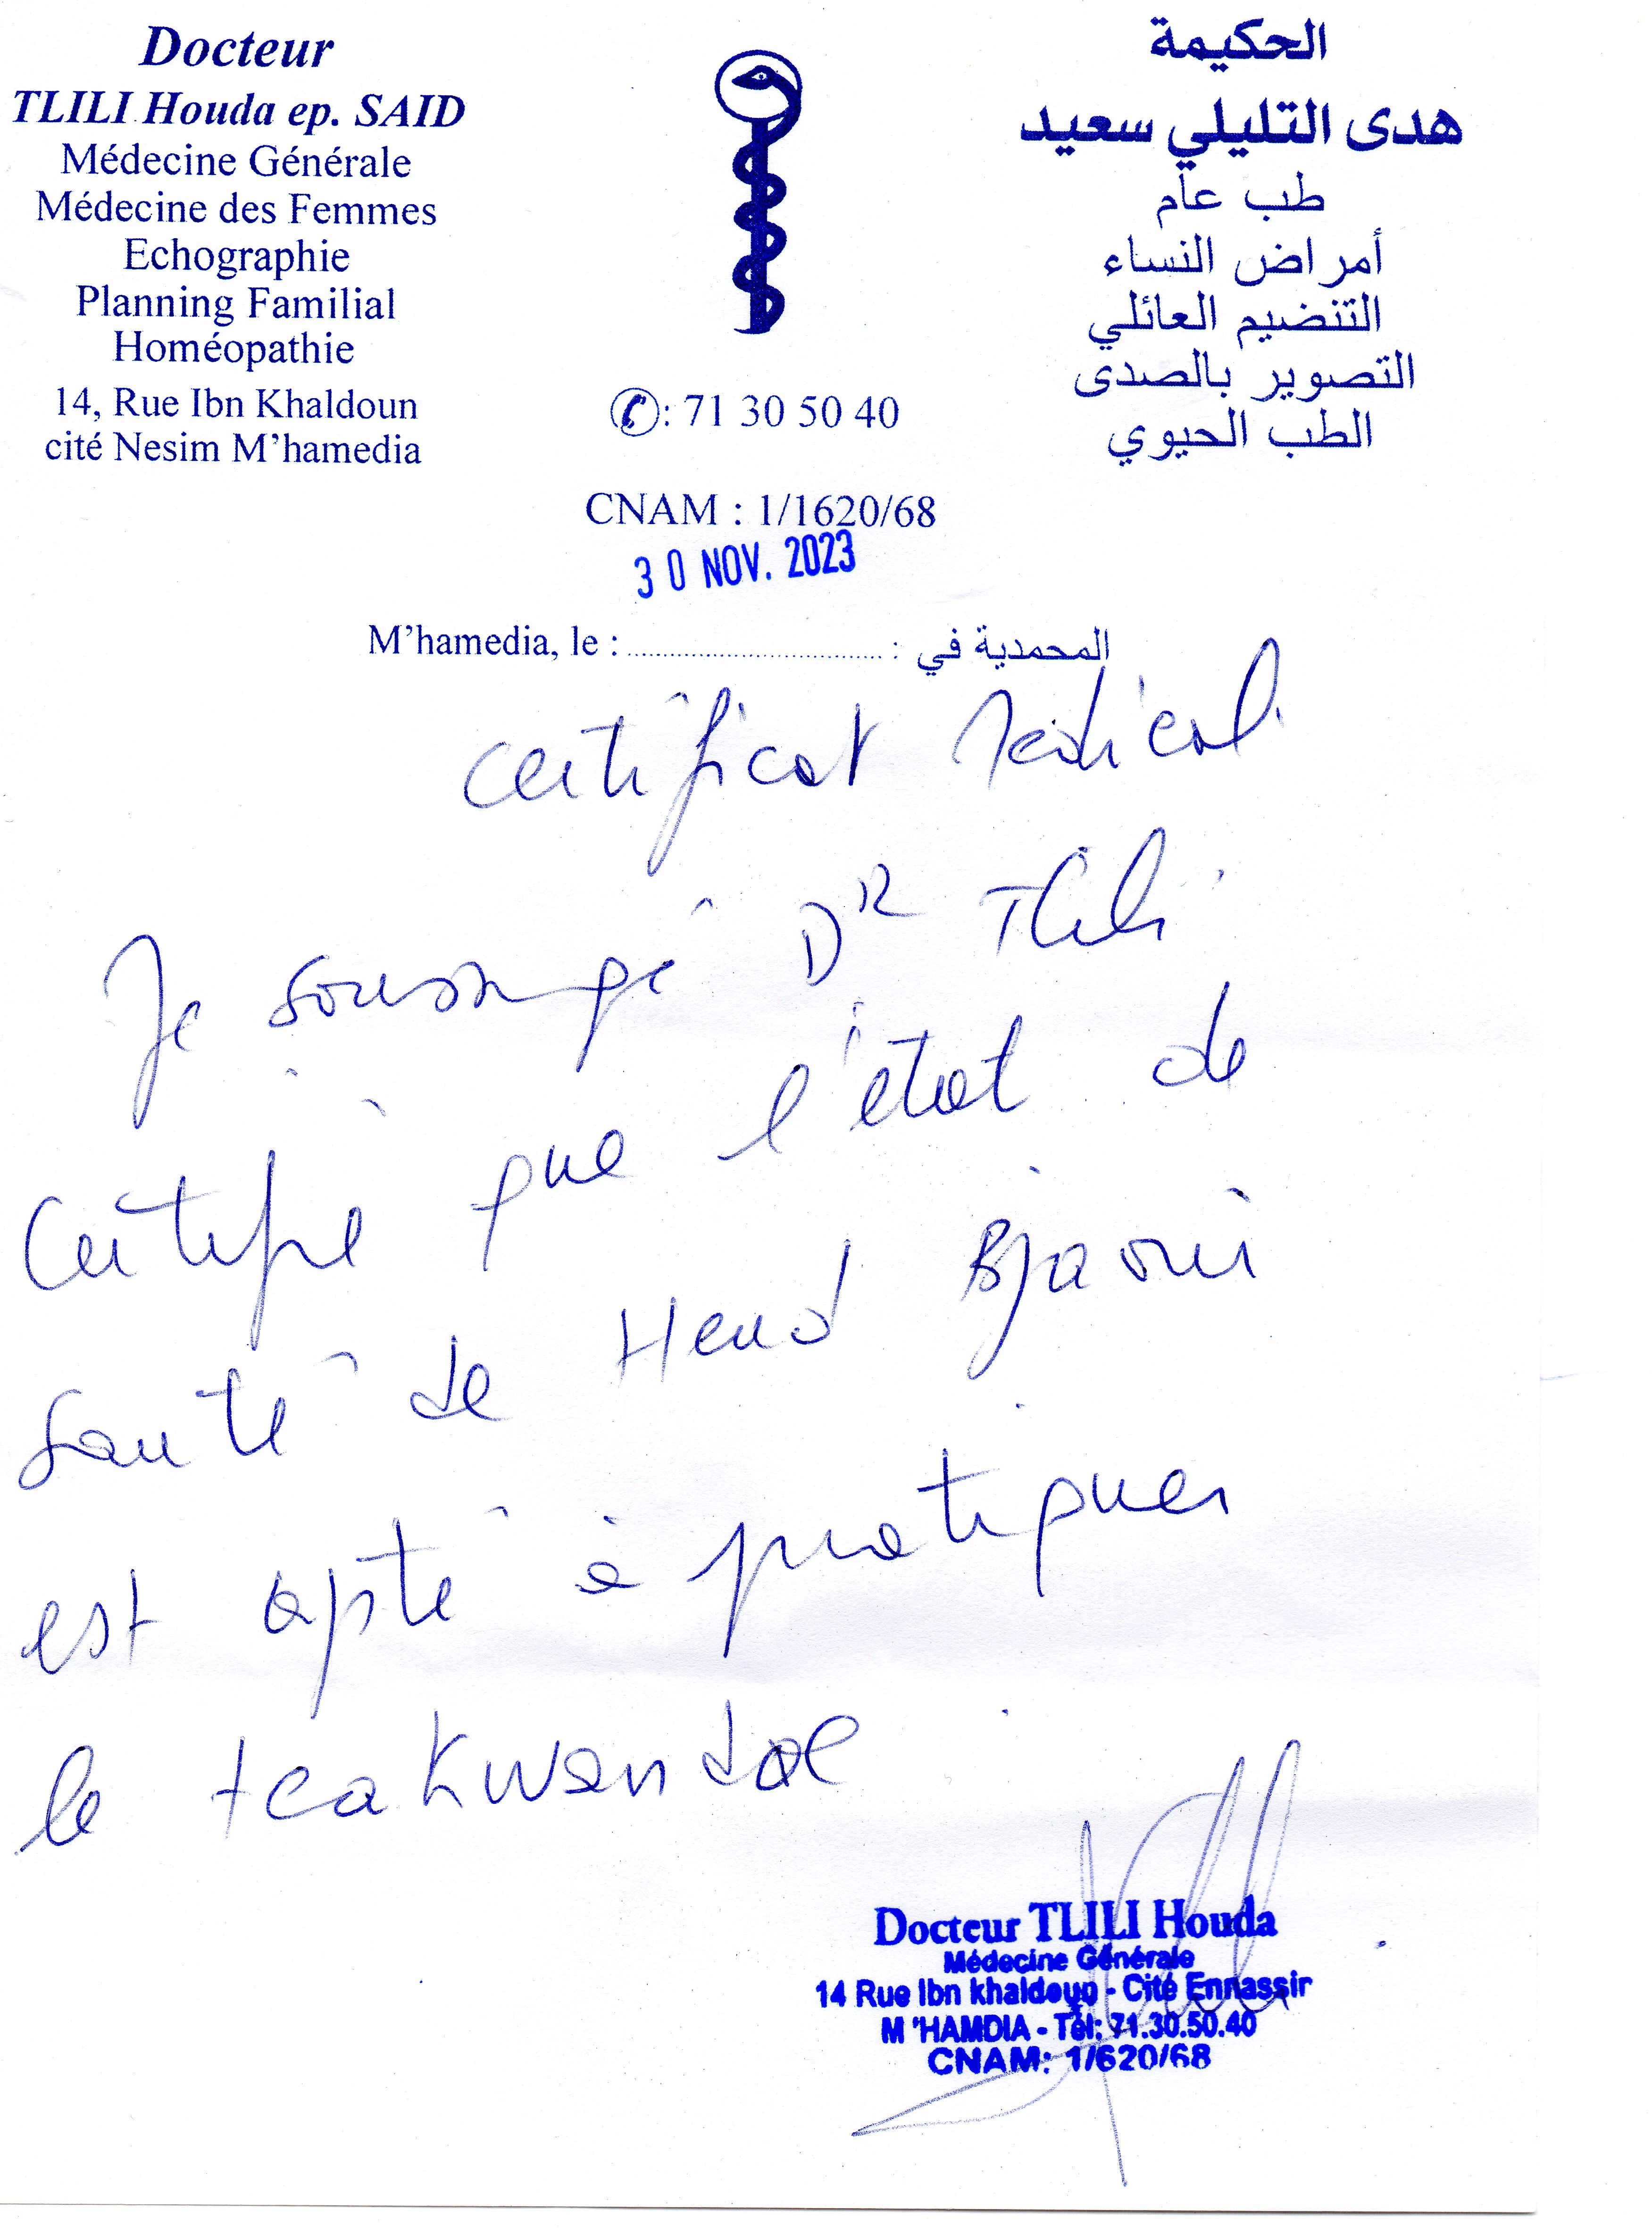 Docteur
TLILI Houda ep. SAID
Médecine Générale
Médecine des Femmes
Echographie
Planning Familial
Homéopathie
14, Rue Ibn Khaldoun
cité Nesim M'hamedia
الحكيمة
هدى التليلي سعيد
طب عام
أمراض النساء
التنضيم العائلي
التصوير بالصدى
الطب الحيوي
: 71 30 50 40
CNAM : 1/1620/68
30 NOV. 2023
M'hamedia, le : .............................. : المحمدية في
Certificat Medical
Je soussigné DR Tlili
Certifie que l'état de
santé de Hend Bjaoui
est apte à pratiquer
le teakwandoe
Docteur TLILI Houda
Médecine Générale
14 Rue Ibn khaldoun - Cité Ennassir
M'HAMDIA - Tél: 71.30.50.40
CNAM: 1/620/68